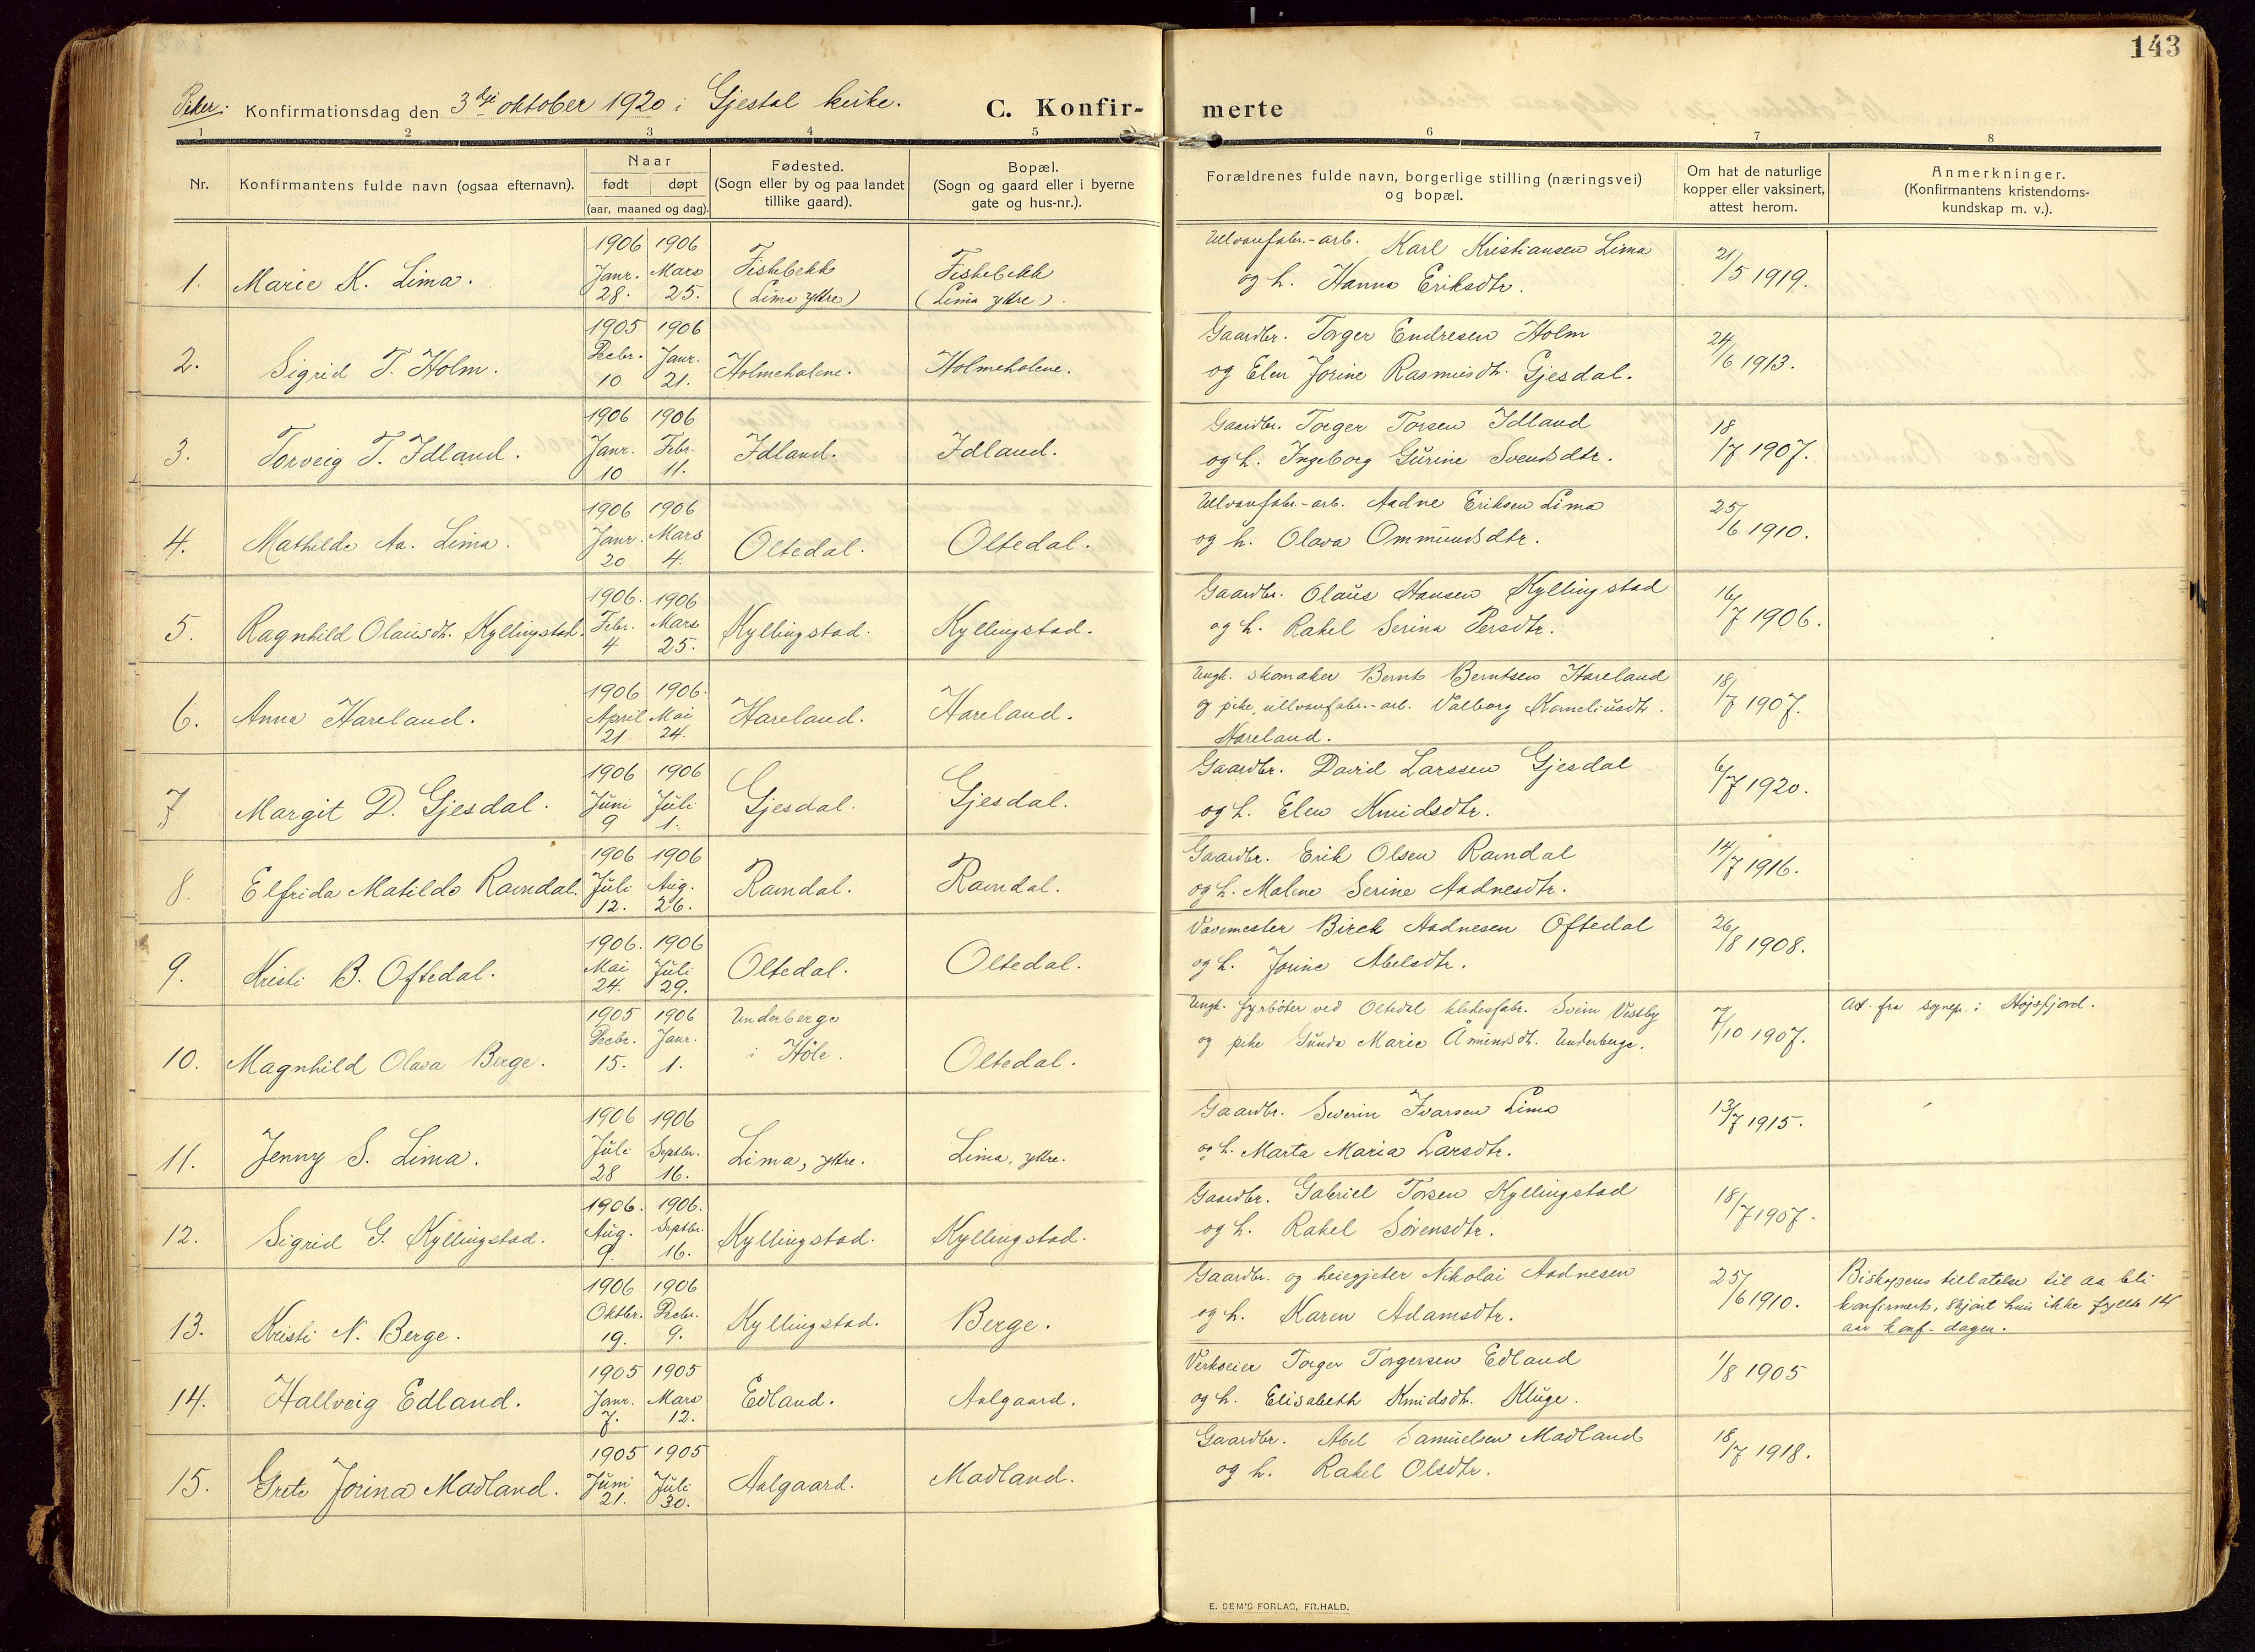 143
Piker: Konfirmationsdag den 3dje oktober 1920 i Gjestal kirke. C. Konfir- merte
1 2 3 4 5 6 7 8
Nr.
Konfirmantens fulde navn (ogsaa efternavn).
Naar
født døpt
(aar, maaned og dag).
Fødested.
(Sogn eller by og paa landet
tillike gaard).
Bopæl.
(Sogn og gaard eller i byerne
gate og hus-nr.).
Forældrenes fulde navn, borgerlige stilling (næringsvei)
og bopæl.
Om hat de naturlige
kopper eller vaksinert,
attest herom.
Anmerkninger.
(Konfirmantens kristendoms-
kundskap m. v.).
1. Marie K. Lima.
1906 Janr. 28.
1906 Mars 25.
Fiskebekk
(Lima ytre)
Fiskebekk
(Lima ytre).
Ullvarefabr.-arb. Karl Kristiansen Lima
og h. Hanna Eriksdtr.
21/5 1919.
2. Sigrid T. Holm.
1905 Decbr. 10
1906 Janr. 21.
Holmeholene.
Holmeholene.
Gaardbr. Torger Endresen Holm
og Elen Jorine Rasmusdtr. Gjesdal.
24/6 1913.
3. Torveig T. Idland.
1906 Janr. 10
1906 Febr. 11.
Idland.
Idland.
Gaardbr. Torger Torsen Idland
og h. Ingeborg Gurine Svendsdtr.
18/7 1907.
4. Mathilde Aa. Lima.
1906 Janr. 20
1906 Mars 4.
Oltedal.
Oltedal.
Ullvarefabr.-arb. Aadne Eriksen Lima
og h. Olava Ommundsdtr.
25/6 1910.
5. Ragnhild Olausdtr. Kyllingstad.
1906. Febr. 4
1906 Mars 25.
Kyllingstad.
Kyllingstad.
Gaardbr. Olaus Hansen Kyllingstad
og h. Rakel Serina Persdtr.
16/7 1906.
6. Anna Hareland.
1906 April 21
1906. Mai 24.
Hareland.
Hareland.
Ungk. skomaker Bernt Berntsen Hareland
og pike, ullvarefabr.-arb. Valborg Korneliusdtr.
Hareland.
18/7 1907.
7 Margit D. Gjesdal.
1906 Juni 9
1906 Juli 1.
Gjesdal.
Gjesdal.
Gaardbr. David Larssen Gjesdal
og h. Elen Knudsdtr.
6/7 1920.
8. Elfrida Matilde Ravndal.
1906 Juli 12.
1906 Aug. 26.
Ravndal.
Ravndal.
Gaardbr. Erik Olsen Ravndal
og h. Malene Serine Aadnesdtr.
14/7 1916.
9. Kristi B. Oftedal.
1906. Mai 24.
1906 Juli 29.
Oltedal.
Oltedal.
Vævemester Birek Aadnesen Oftedal
og h. Jorine Abelsdtr.
26/8 1908.
10. Magnhild Olava Berge.
1905 Decbr. 15.
1906 Janr. 1.
Underberge
i Höle.
Oltedal.
Ungk. fyrbøter ved Oltedal klædesfabr. Svein Vestby
og pike Gunda Marie Åmundsdtr. Underberge.
7/10 1907.
Att. fra sognepr. i Høgsfjord.
11. Jenny S. Lima.
1906 Juli 28
1906 Septbr. 16.
Lima, ytre.
Lima, ytre.
Gaardbr. Severin Ivarsen Lima
og h. Marta Maria Larsdtr.
13/7 1915.
12. Sigrid G. Kyllingstad.
1906. Aug. 9.
1906. Septbr. 16.
Kyllingstad.
Kyllingstad.
Gaardbr. Gabriel Torsen Kyllingstad
og h. Rakel Sørensdtr.
18/7 1907.
13. Kristi N. Berge.
1906 Oktbr. 19.
1906 Decbr. 9.
Kyllingstad.
Berge.
Gaardbr. og heiegjeter Nikolai Aadnesen
og h. Karen Adamsdtr.
25/6 1910.
Biskopens tillatelse til aa bli
konfirmert, skjønt hun ikke fyllte 14
aar konf-dagen.
14. Hallveig Edland.
1905 Janr. 7.
1905 Mars 12.
Edland.
Aalgaard.
Verkseier Torger Torgersen Edland
og h. Elisabeth Knudsdtr. Kluge.
1/8 1905
15. Grete Jorina Madland.
1905 Juni 21.
1905 Juli 30.
Aalgaard.
Madland.
Gaardbr. Abel Samuelsen Madland
og h. Rakel Olsdtr.
18/7 1918.
E. SEM'S FORLAG, FR.HALD.